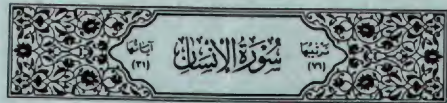 ترتيبها (٧٦) سورة الإنسان آياتها (٣١)